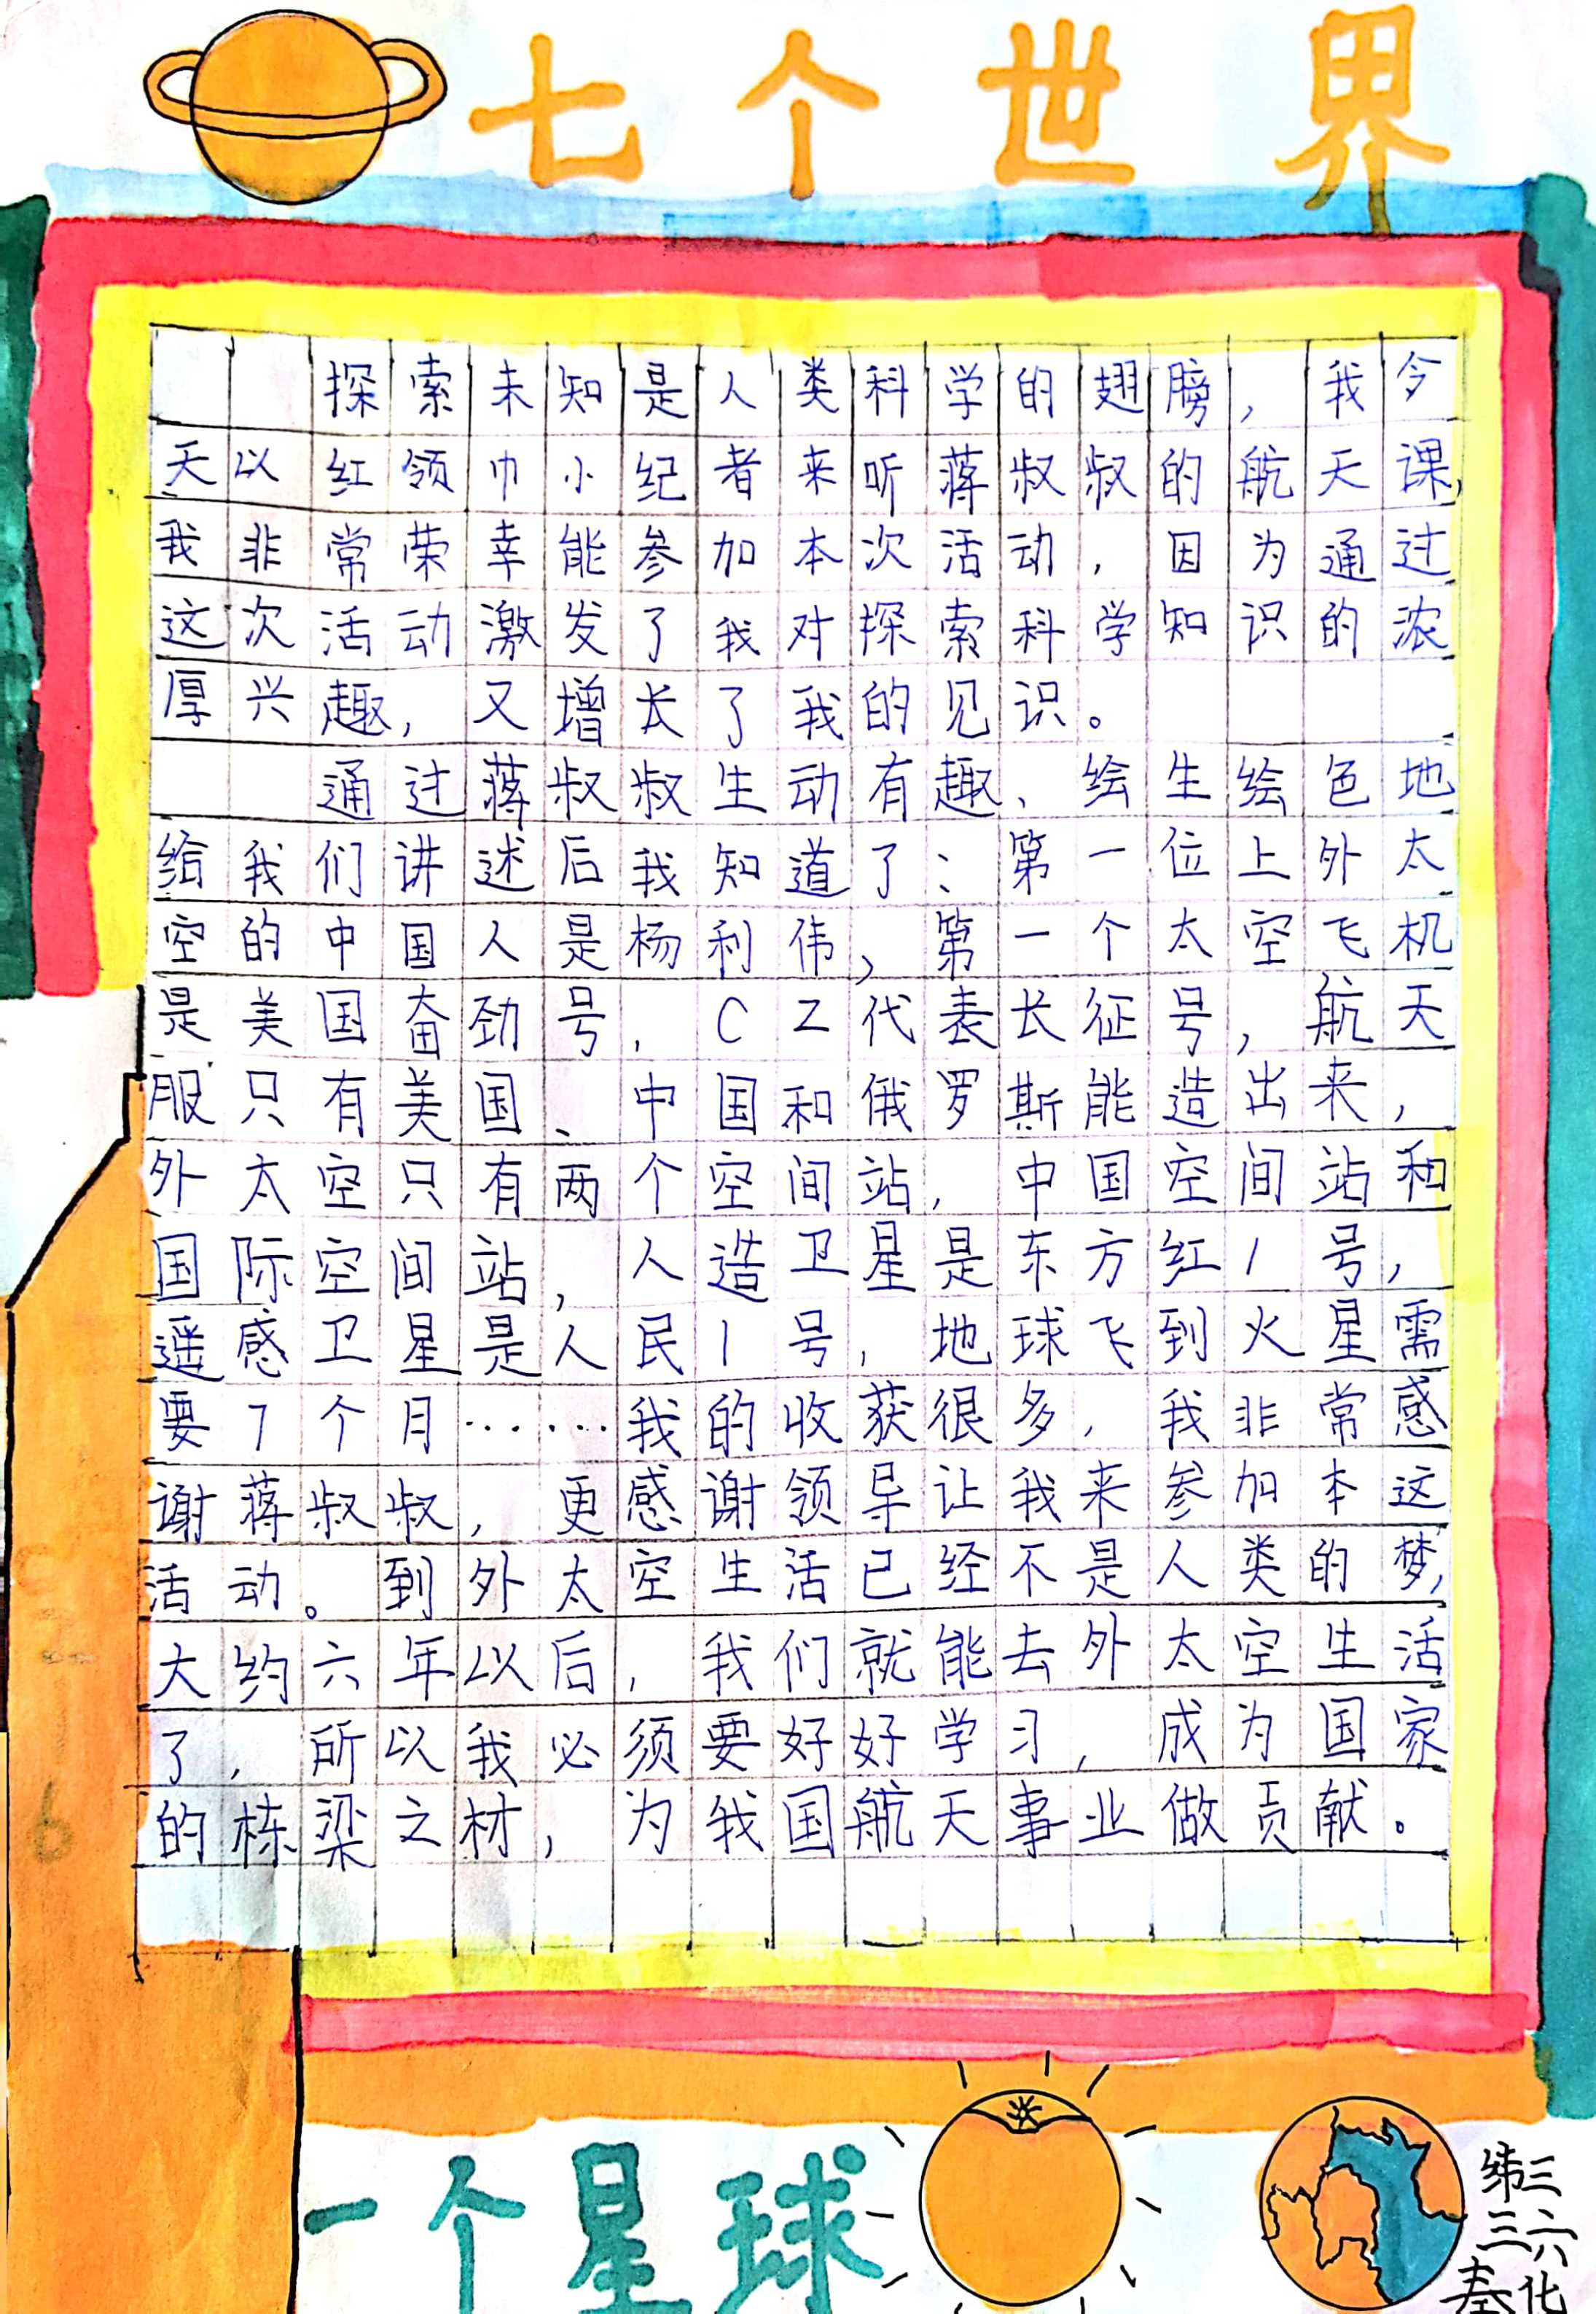 七个世界
探索未知是人类科学的翅膀，我今
天以红领巾小纪者来听蒋叔叔的航天课，
我非常荣幸能参加本次活动，因为通过
这次活动激发了我对探索科学知识的浓
厚兴趣，又增长了我的见识。
通过蒋叔叔生动有趣、绘生绘色地
给我们讲述后我知道了：第一位上外太
空的中国人是杨利伟，第一个太空飞机
是美国奋劲号，CZ代表长征号，航天
服只有美国、中国和俄罗斯能造出来，
外太空只有两个空间站，中国空间站和
国际空间站，人造卫星是东方红1号，
遥感卫星是人民1号，地球飞到火星需
要7个月……我的收获很多，我非常感
谢蒋叔叔，更感谢领导让我来参加本这
活动。到外太空生活已经不是人类的梦，
大约六年以后，我们就能去外太空生活
了，所以我必须要好好学习，成为国家
的栋梁之材，为我国航天事业做贡献。
一个星球
纬三
三六